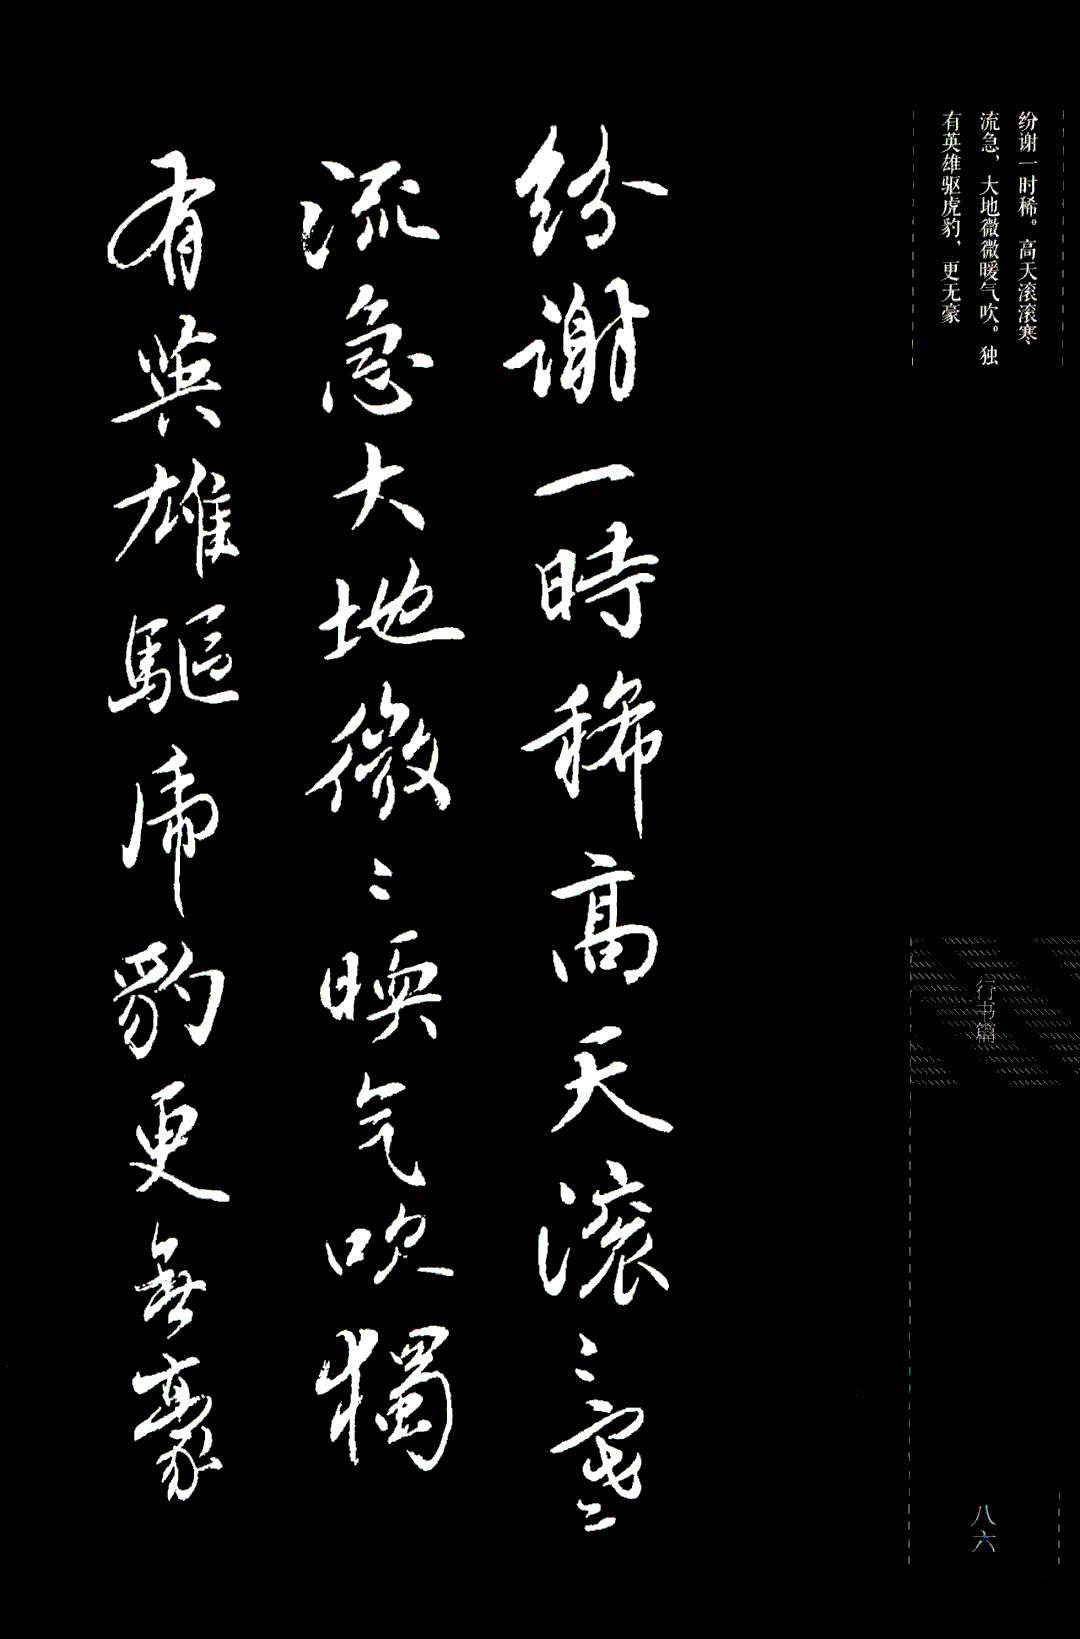 纷谢一时稀。高天滚滚寒
流急，大地微微暖气吹。独
有英雄驱虎豹，更无豪
行书篇
八六
纷谢一時稀高天滚〻寒
流急大地微〻暖气吹獨
有英雄驅虎豹更無豪